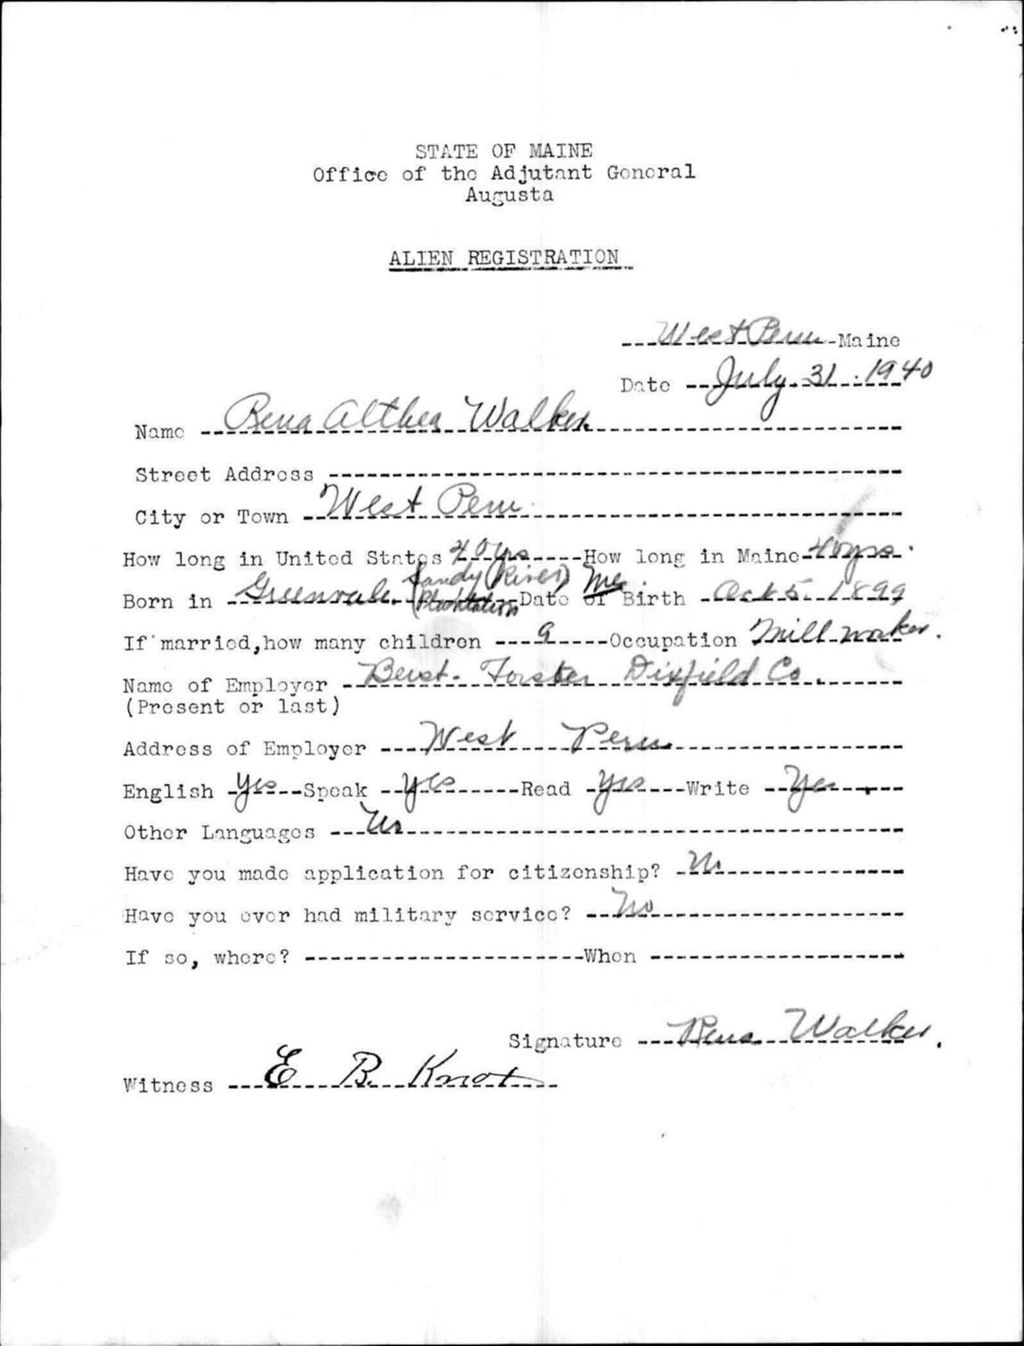 STATE OF MAINE
Office of the Adjutant General
Augusta
ALIEN REGISTRATION
West Peru Maine
Date July 31. 1940
Name Rena Althea Walker
Street Address
City or Town West Peru
How long in United States 40 yrs How long in Maine 40 yrs.
Born in Greenvale (Sandy River Plantation) Me. Date of Birth Oct 5. 1899
If married, how many children 9 Occupation Mill worker.
Name of Employer Berst. Forster Dixfield Co.
(Present or last)
Address of Employer West Peru
English Yes Speak yes Read yes Write Yes.
Other Languages No
Have you made application for citizenship? No
Have you ever had military service? No
If so, where? When
Signature Rena Walker.
Witness E B. Knox